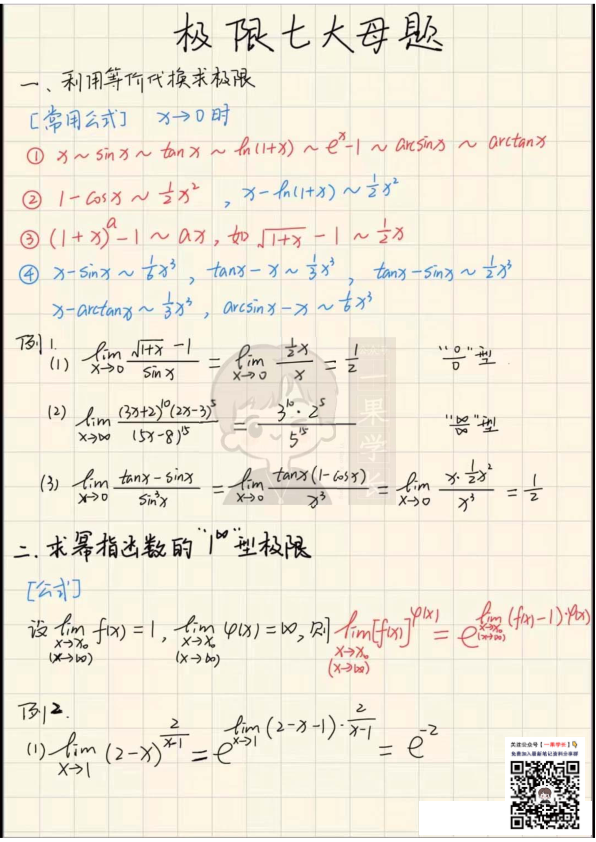 极限七大母题
一、利用等价代换求极限
[常用公式] x→0时
① x ~ sin x ~ tan x ~ ln(1+x) ~ eˣ-1 ~ arcsinx ~ arctanx
② 1-cosx ~ ½x² , x-ln(1+x) ~ ½x²
③ (1+x)ᵃ-1 ~ ax, 如 √(1+x) - 1 ~ ½x
④ x-sinx ~ 1/6 x³ , tanx-x ~ 1/3 x³ , tanx-sinx ~ ½x³
x-arctanx ~ 1/3 x³ , arcsinx-x ~ 1/6 x³
例1.
(1) lim_{x→0} (√(1+x) -1)/(sin x) = lim_{x→0} (½x)/x = 1/2 "0/0"型
(2) lim_{x→∞} (3x+2)¹⁰(2x-3)⁵/(5x-8)¹⁵ = 3¹⁰·2⁵/5¹⁵ "∞/∞"型
(3) lim_{x→0} (tanx-sinx)/(sin³x) = lim_{x→0} tanx(1-cosx)/x³ = lim_{x→0} (x·½x²)/x³ = 1/2
二、求幂指函数的"1^∞"型极限
[公式]
设 lim_{x→x₀ (x→∞)} f(x)=1, lim_{x→x₀ (x→∞)} φ(x)=∞, 则 lim_{x→x₀ (x→∞)} [f(x)]^{φ(x)} = e^{lim_{x→x₀ (x→∞)} (f(x)-1)·φ(x)}
例2.
(1) lim_{x→1} (2-x)^{2/(x-1)} = e^{lim_{x→1} (2-x-1)·2/(x-1)} = e^{-2}
一果学长
关注公众号【一果学长】👇
免费加入最新笔记资料分享群